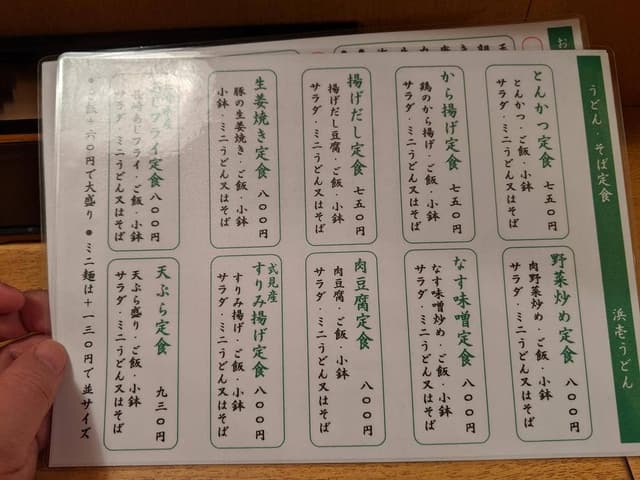 うどん・そば定食
浜壱うどん
とんかつ定食 七五〇円
とんかつ・ご飯・小鉢
サラダ・ミニうどん又はそば
から揚げ定食 七五〇円
鶏のから揚げ・ご飯・小鉢
サラダ・ミニうどん又はそば
揚げだし定食 七五〇円
揚げだし豆腐・ご飯・小鉢
サラダ・ミニうどん又はそば
生姜焼き定食 八〇〇円
豚の生姜焼き・ご飯
小鉢・ミニうどん又はそば
あじフライ定食 八〇〇円
長崎あじフライ・ご飯・小鉢
サラダ・ミニうどん又はそば
野菜炒め定食 八〇〇円
肉野菜炒め・ご飯・小鉢
サラダ・ミニうどん又はそば
なす味噌定食 八〇〇円
なす味噌炒め・ご飯・小鉢
サラダ・ミニうどん又はそば
肉豆腐定食 八〇〇円
肉豆腐・ご飯・小鉢
サラダ・ミニうどん又はそば
式見産
すりみ揚げ定食 八〇〇円
すりみ揚げ・ご飯・小鉢
サラダ・ミニうどん又はそば
天ぷら定食 九三〇円
天ぷら盛り・ご飯・小鉢
サラダ・ミニうどん又はそば
＋六〇円で大盛り ●ミニ麺は＋一三〇円で並サイズ